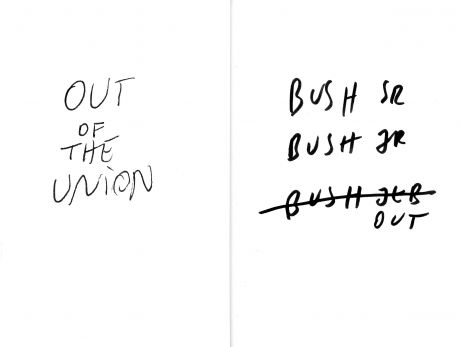 OUT
OF
THE
UNiON
BUSH SR
BUSH JR
BUSH JEB
OUT